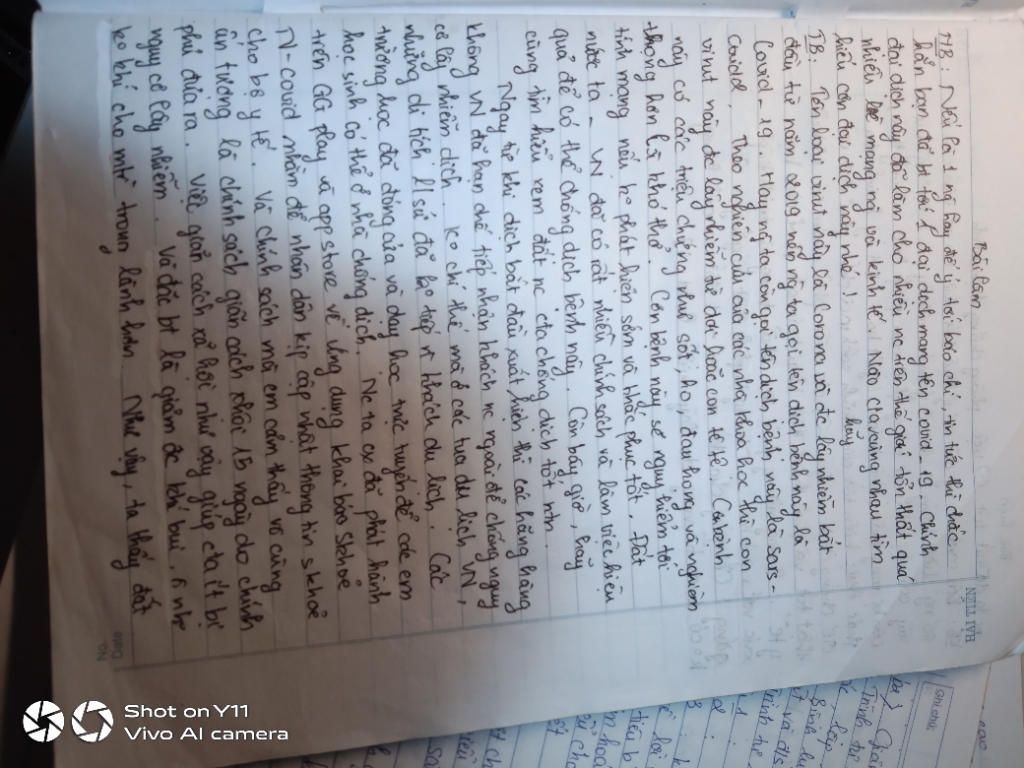 Bài làm
MB: Nếu là 1 ng hay để ý tới báo chí, tin tức thì chắc
hẳn bạn đã bt tới 1 đại dịch mang tên covid-19. Chính
đại dịch này đã làm cho nhiều nc trên thế giới tổn thất quá
nhiều về mạng ng và kinh tế. Nào cta cùng nhau tìm
hiểu con đại dịch này nhé!
TB: Tên loài virut này là Corona và đc lây nhiễm bắt
đầu từ năm 2019 nên ng ta gọi tên dịch bệnh này là
Covid-19. Hay ng ta còn gọi tên dịch bệnh này là Sars-
covid. Theo nghiên cứu của các nhà khoa học thì con
virut này đc lây nhiễm từ dơi hoặc con tê tê. Cănbệnh
này có các triệu chứng như sốt, ho, đau họng và nghiêm
trọng hơn là khó thở. Con bệnh này sẽ nguy hiểm tới
tính mạng nếu ko phát hiện sớm và khắc phục tốt. Đất
nước ta - VN đã có rất nhiều chính sách và làm việc hiệu
quả để có thể chống dịch bệnh này. Còn bây giờ, hãy
cùng tìm hiểu xem đất nc cta chống dịch tốt ntn.
Ngay từ khi dịch bắt đầu xuất hiện thì các hãng hàng
không VN đã hạn chế tiếp nhận khách nc ngoài để chống nguy
cơ lây nhiễm dịch. Ko chỉ thế mà ở các tua du lịch VN,
những di tích lị sử đã ko tiếp rc khách du lịch. Các
trường học đã đóng cửa và dạy học trực tuyến để các em
học sinh có thể ở nhà chống dịch. Nc ta cx đã phát hành
trên GG play và app store về ứng dụng khai báo skhỏe
N-covid nhằm để nhân dân kịp cập nhật thông tin skhoẻ
cho bộ y tế. Và chính sách mà em cảm thấy vô cùng
ấn tượng là chính sách giãn cách xhội 15 ngày do chính
phủ đưa ra. Việc giãn cách xã hội như vậy giúp cta ít bị
nguy cơ lây nhiễm. Và đặc bt là giảm đc khí bụi,
ko khí cho mtr trong lành hơn. Như vậy, ta thấy đất
HẢI TIẾN
Date
No.
Shot on Y11
Vivo AI camera